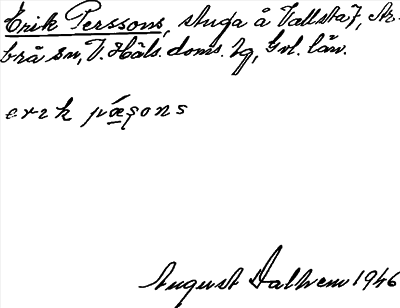 Erik Perssons, stuga å Vallsta 7, Ar-
brå sn, V. Häls. doms. tg, Gvl. län.
erik pæ̲ʂons
August Dalhem 1946